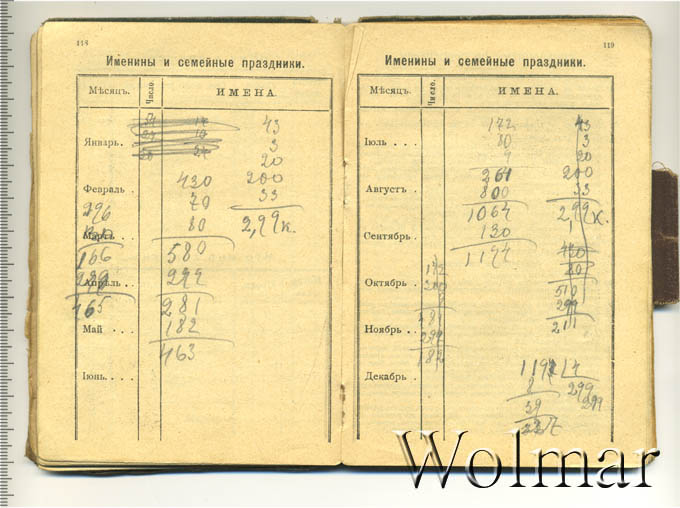 118
Именины и семейные праздники.
Мѣсяцъ. Число. ИМЕНА.
43
Январь. 3
20
Февраль. 430 200
70 33
296 80 2,99 к.
Мартъ.
166 580
299
Апрѣль.
465 281
Май 182
463
Іюнь.
119
Именины и семейные праздники.
Мѣсяцъ. Число. ИМЕНА.
172 43
Іюль 80 3
9 20
261 200
Августъ. 800 33
1064 2,99 к.
Сентябрь. 130
1194
172 80
Октябрь. 510
299
481 211
Ноябрь. 299
182
Декабрь. 1197 4
8 299
39 299
Wolmar